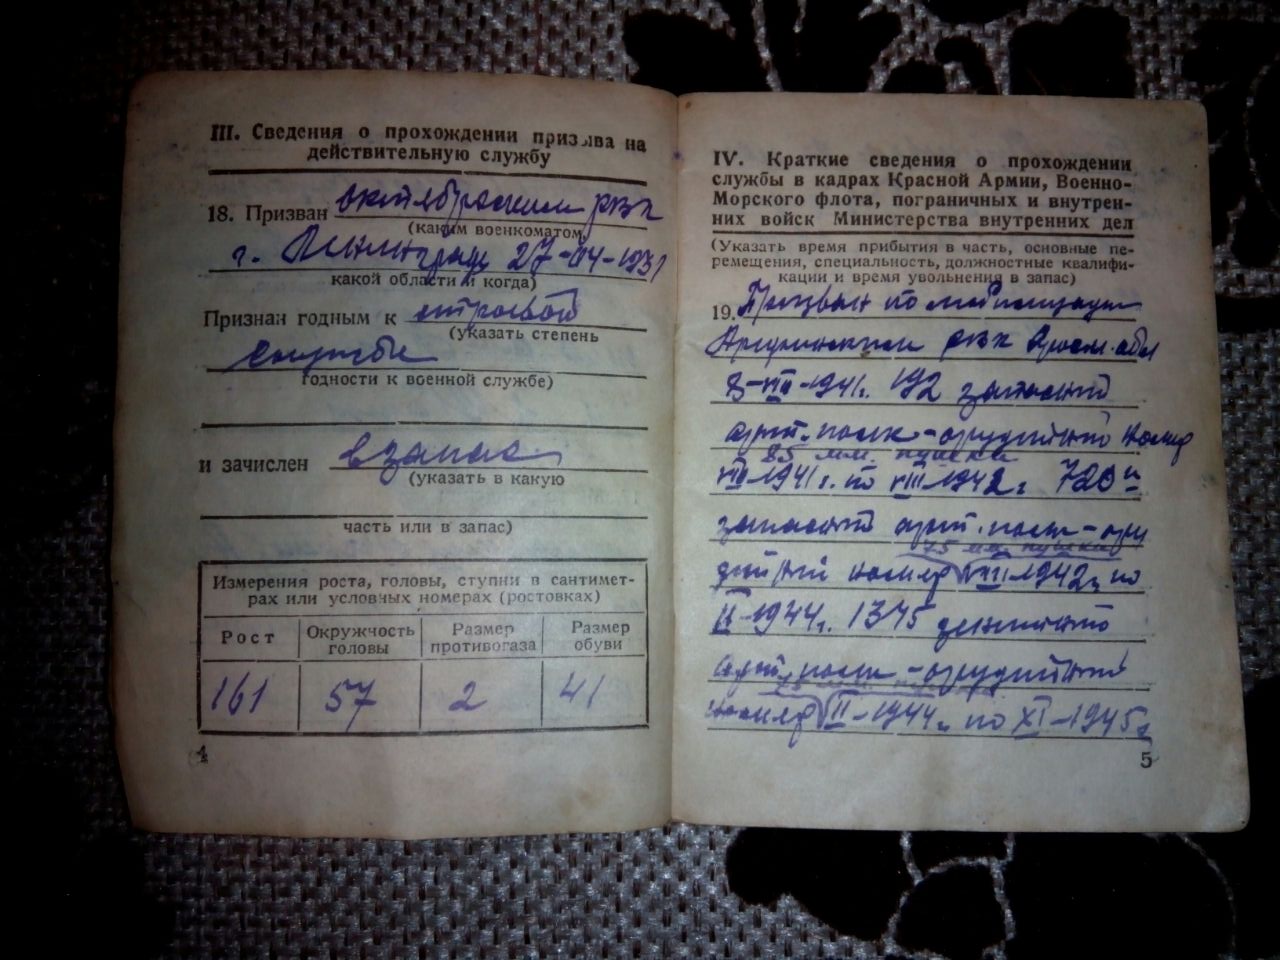 III. Сведения о прохождении призыва на
действительную службу
18. Призван октябрьским рвк
(каким военкоматом,
г. Ленинград 27-04-1931
какой области и когда)
Признан годным к строевой
(указать степень
службе
годности к военной службе)
и зачислен в запас
(указать в какую
часть или в запас)
Измерения роста, головы, ступни в сантимет-
рах или условных номерах (ростовках)
Рост Окружность головы Размер противогаза Размер обуви
161 57 2 41
4
IV. Краткие сведения о прохождении
службы в кадрах Красной Армии, Военно-
Морского флота, пограничных и внутрен-
них войск Министерства внутренних дел
(Указать время прибытия в часть, основные пе-
ремещения, специальность, должностные квалифи-
кации и время увольнения в запас)
19. Призван по мобилизации
рвк обл
8-VIII-1941г. 192 запасной
арт. полк - орудийный номер
85 мм. пушки
VIII-1941г. по VIII-1942г 720й
запасной арт. полк - ору
мм пушки
дийный номер VIII-1942г по
II-1944г. 1345 зенитный
арт. полк - орудийный
номер II-1944г. по XI-1945г
5